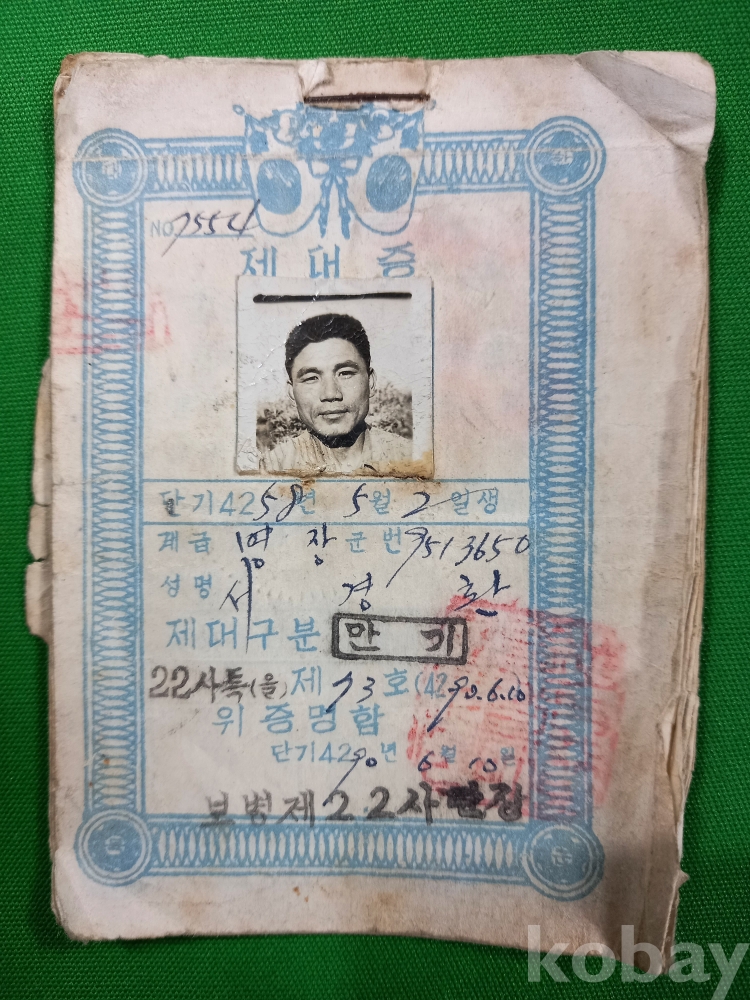 NO 7554
제대증
단기4258년 5월 2일생
계급 병장 군번 9513650
성명 서경환
제대구분 만기
22사특(을) 제73호(4290.6.10
위증명함
단기4290년 6월 10일
보병제22사단장
kobay